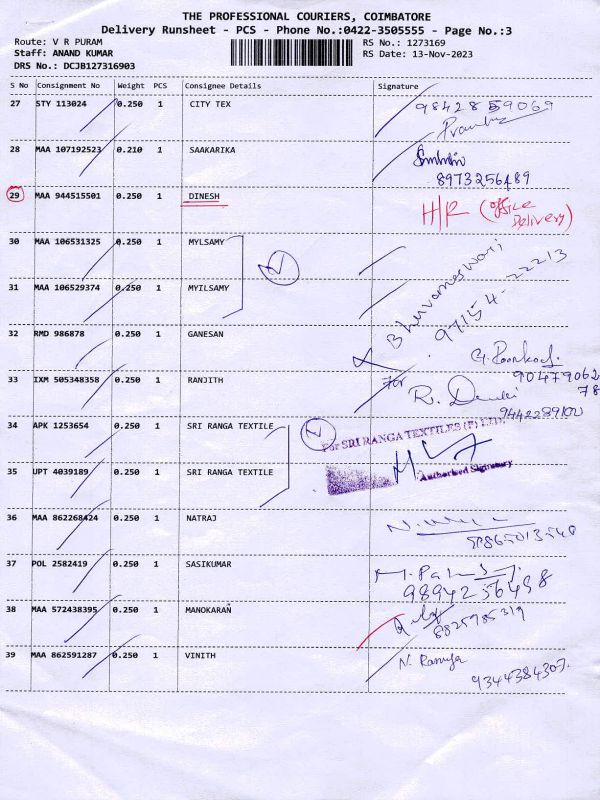 THE PROFESSIONAL COURIERS, COIMBATORE
Delivery Runsheet - PCS - Phone No.:0422-3505555 - Page No.:3
Route: V R PURAM
RS No.: 1273169
Staff: ANAND KUMAR
RS Date: 13-Nov-2023
DRS No.: DCJB127316903
S No Consignment No Weight PCS Consignee Details Signature
27 STY 113024 0.250 1 CITY TEX 9842859069
28 MAA 107192523 0.210 1 SAAKARIKA
8973256489
29 MAA 944515501 0.250 1 DINESH H/R (office Delivery)
30 MAA 106531325 0.250 1 MYLSAMY
31 MAA 106529374 0.250 1 MYILSAMY
Bhuvaneswari
97154-22213
32 RMD 986878 0.250 1 GANESAN
33 IXM 505348358 0.250 1 RANJITH For
9047906278
34 APK 1253654 0.250 1 SRI RANGA TEXTILE
For SRI RANGA TEXTILES (P) LTD.
35 UPT 4039189 0.250 1 SRI RANGA TEXTILE
Authorised Signatory
36 MAA 862268424 0.250 1 NATRAJ
37 POL 2582419 0.250 1 SASIKUMAR
9894256498
38 MAA 572438395 0.250 1 MANOKARAÑ
8825985319
39 MAA 862591287 0.250 1 VINITH N. Ramya
9344384307.